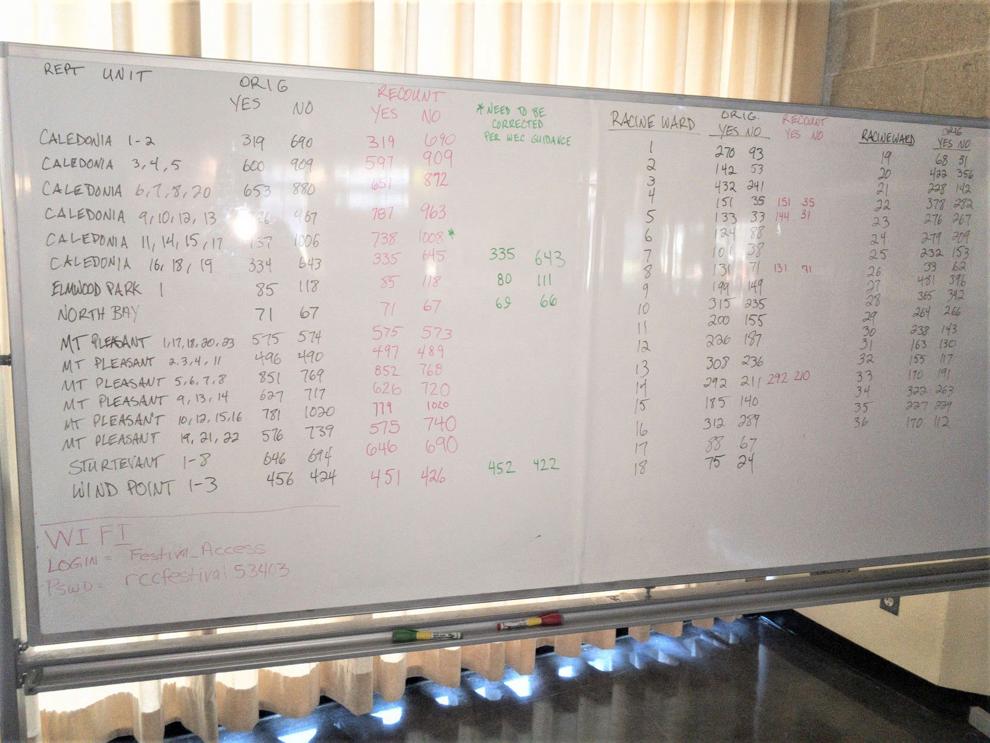 REPT UNIT ORIG YES NO RECOUNT YES NO
* NEED TO BE CORRECTED PER WEC GUIDANCE
CALEDONIA 1-2 319 690 319 690
CALEDONIA 3,4,5 600 909 597 909
CALEDONIA 6,7,8,20 653 880 651 872
CALEDONIA 9,10,12,13 967 787 963
CALEDONIA 11,14,15,17 1006 738 1008*
CALEDONIA 16,18,19 334 643 335 645 335 643
ELMWOOD PARK 1 85 118 85 118 80 111
NORTH BAY 71 67 71 67 69 66
MT PLEASANT 1,17,18,20,23 575 574 575 573
MT PLEASANT 2,3,4,11 496 490 497 489
MT PLEASANT 5,6,7,8 851 769 852 768
MT PLEASANT 9,13,14 627 717 626 720
MT PLEASANT 10,12,15,16 781 1020 779 1020
MT PLEASANT 19,21,22 576 739 575 740
STURTEVANT 1-8 646 694 646 690
WIND POINT 1-3 456 424 451 426 452 422
WIFI
LOGIN = Festival_Access
PSWD = rccfestival53403
RACINE WARD ORIG. YES NO RECOUNT YES NO
1 270 93
2 142 53
3 432 241
4 151 35 151 35
5 133 33 144 31
6 124 88
7 38
8 131 71 131 71
9 199 149
10 315 235
11 200 155
12 226 187
13 308 236
14 292 211 292 210
15 185 140
16 312 289
17 88 67
18 75 24
RACINE WARD ORIG YES NO
19 68 31
20 422 356
21 228 142
22 378 282
23 276 267
24 279 209
25 232 153
26 33 62
27 451 396
28 365 342
29 264 266
30 238 143
31 163 130
32 155 117
33 170 191
34 322 263
35 227 229
36 170 112